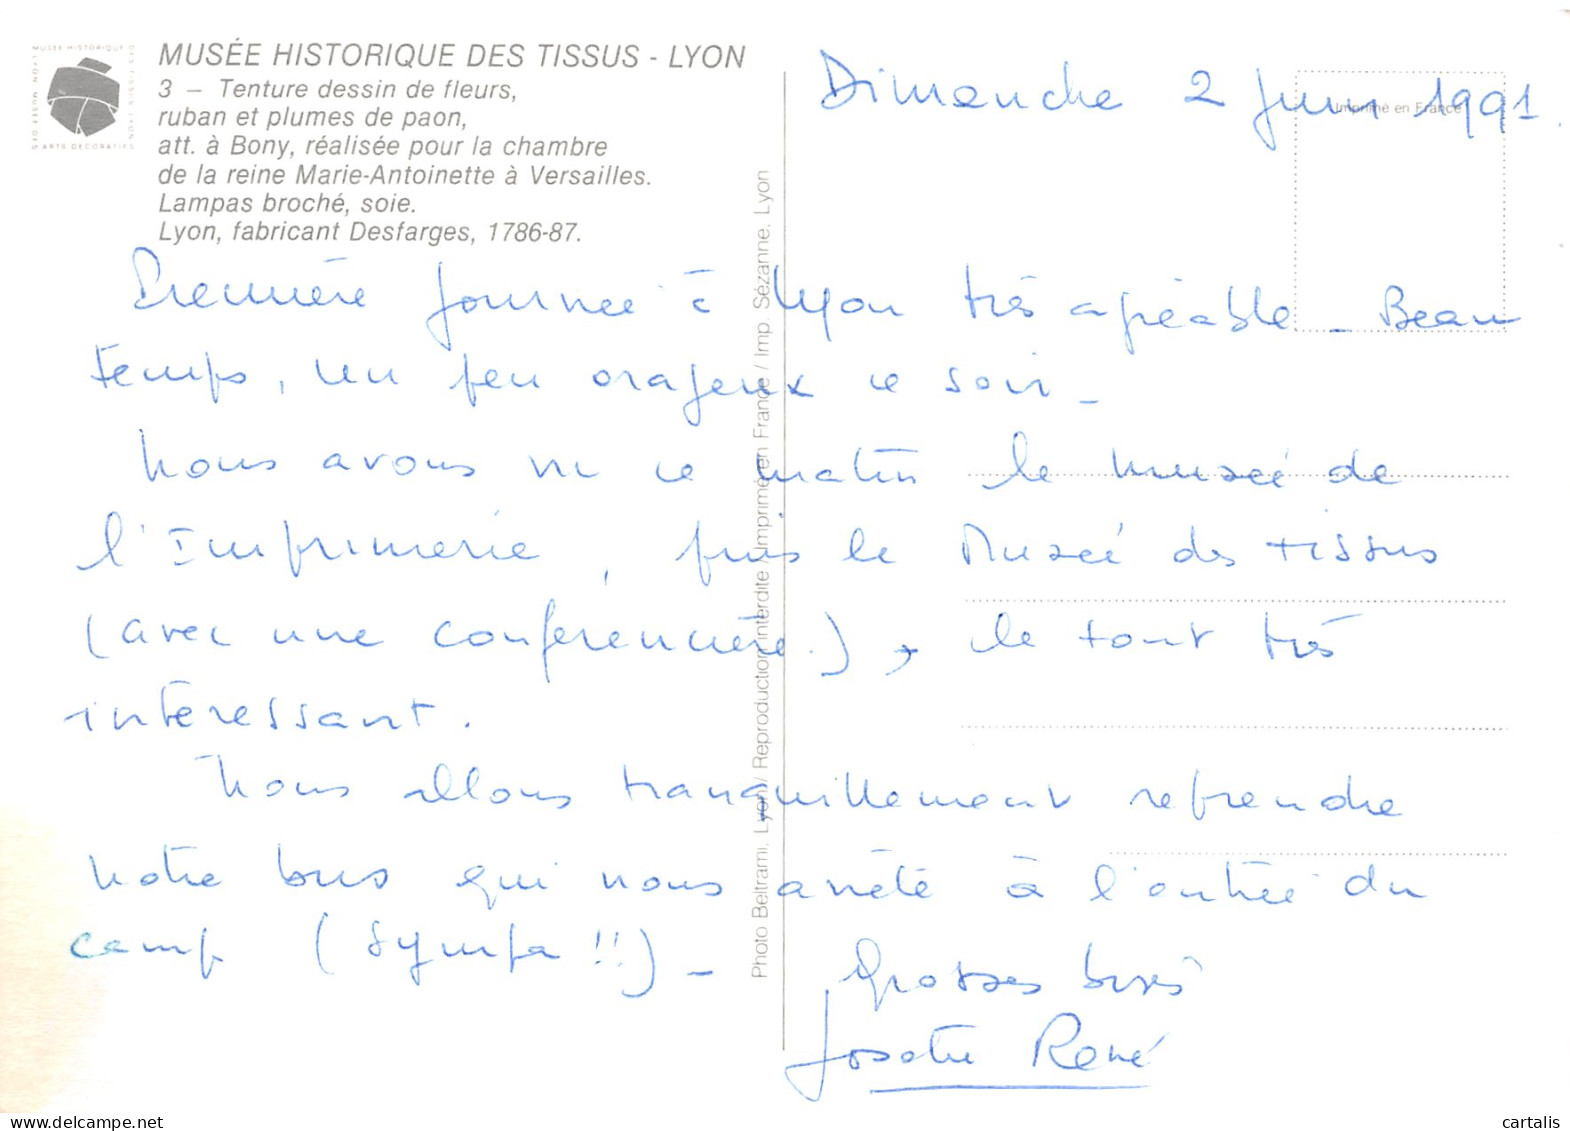 MUSÉE HISTORIQUE DES TISSUS - LYON
3 – Tenture dessin de fleurs,
ruban et plumes de paon,
att. à Bony, réalisée pour la chambre
de la reine Marie-Antoinette à Versailles.
Lampas broché, soie.
Lyon, fabricant Desfarges, 1786-87.
Imprimé en France
Dimanche 2 Juin 1991.
Première journée à Lyon très agréable _ Beau
temps, un peu orageux ce soir _
Nous avons vu ce matin le musée de
l'Imprimerie, puis le Musée des tissus
(avec une conférencière), le tout très
intéressant.
Nous allons tranquillement reprendre
notre bus qui nous arrête à l'entrée du
camp (sympa !!) _
Grosses bises
Josette René
Photo Beltrami, Lyon / Reproduction interdite / Imprimé en France / Imp. Sézanne. Lyon
cartalis